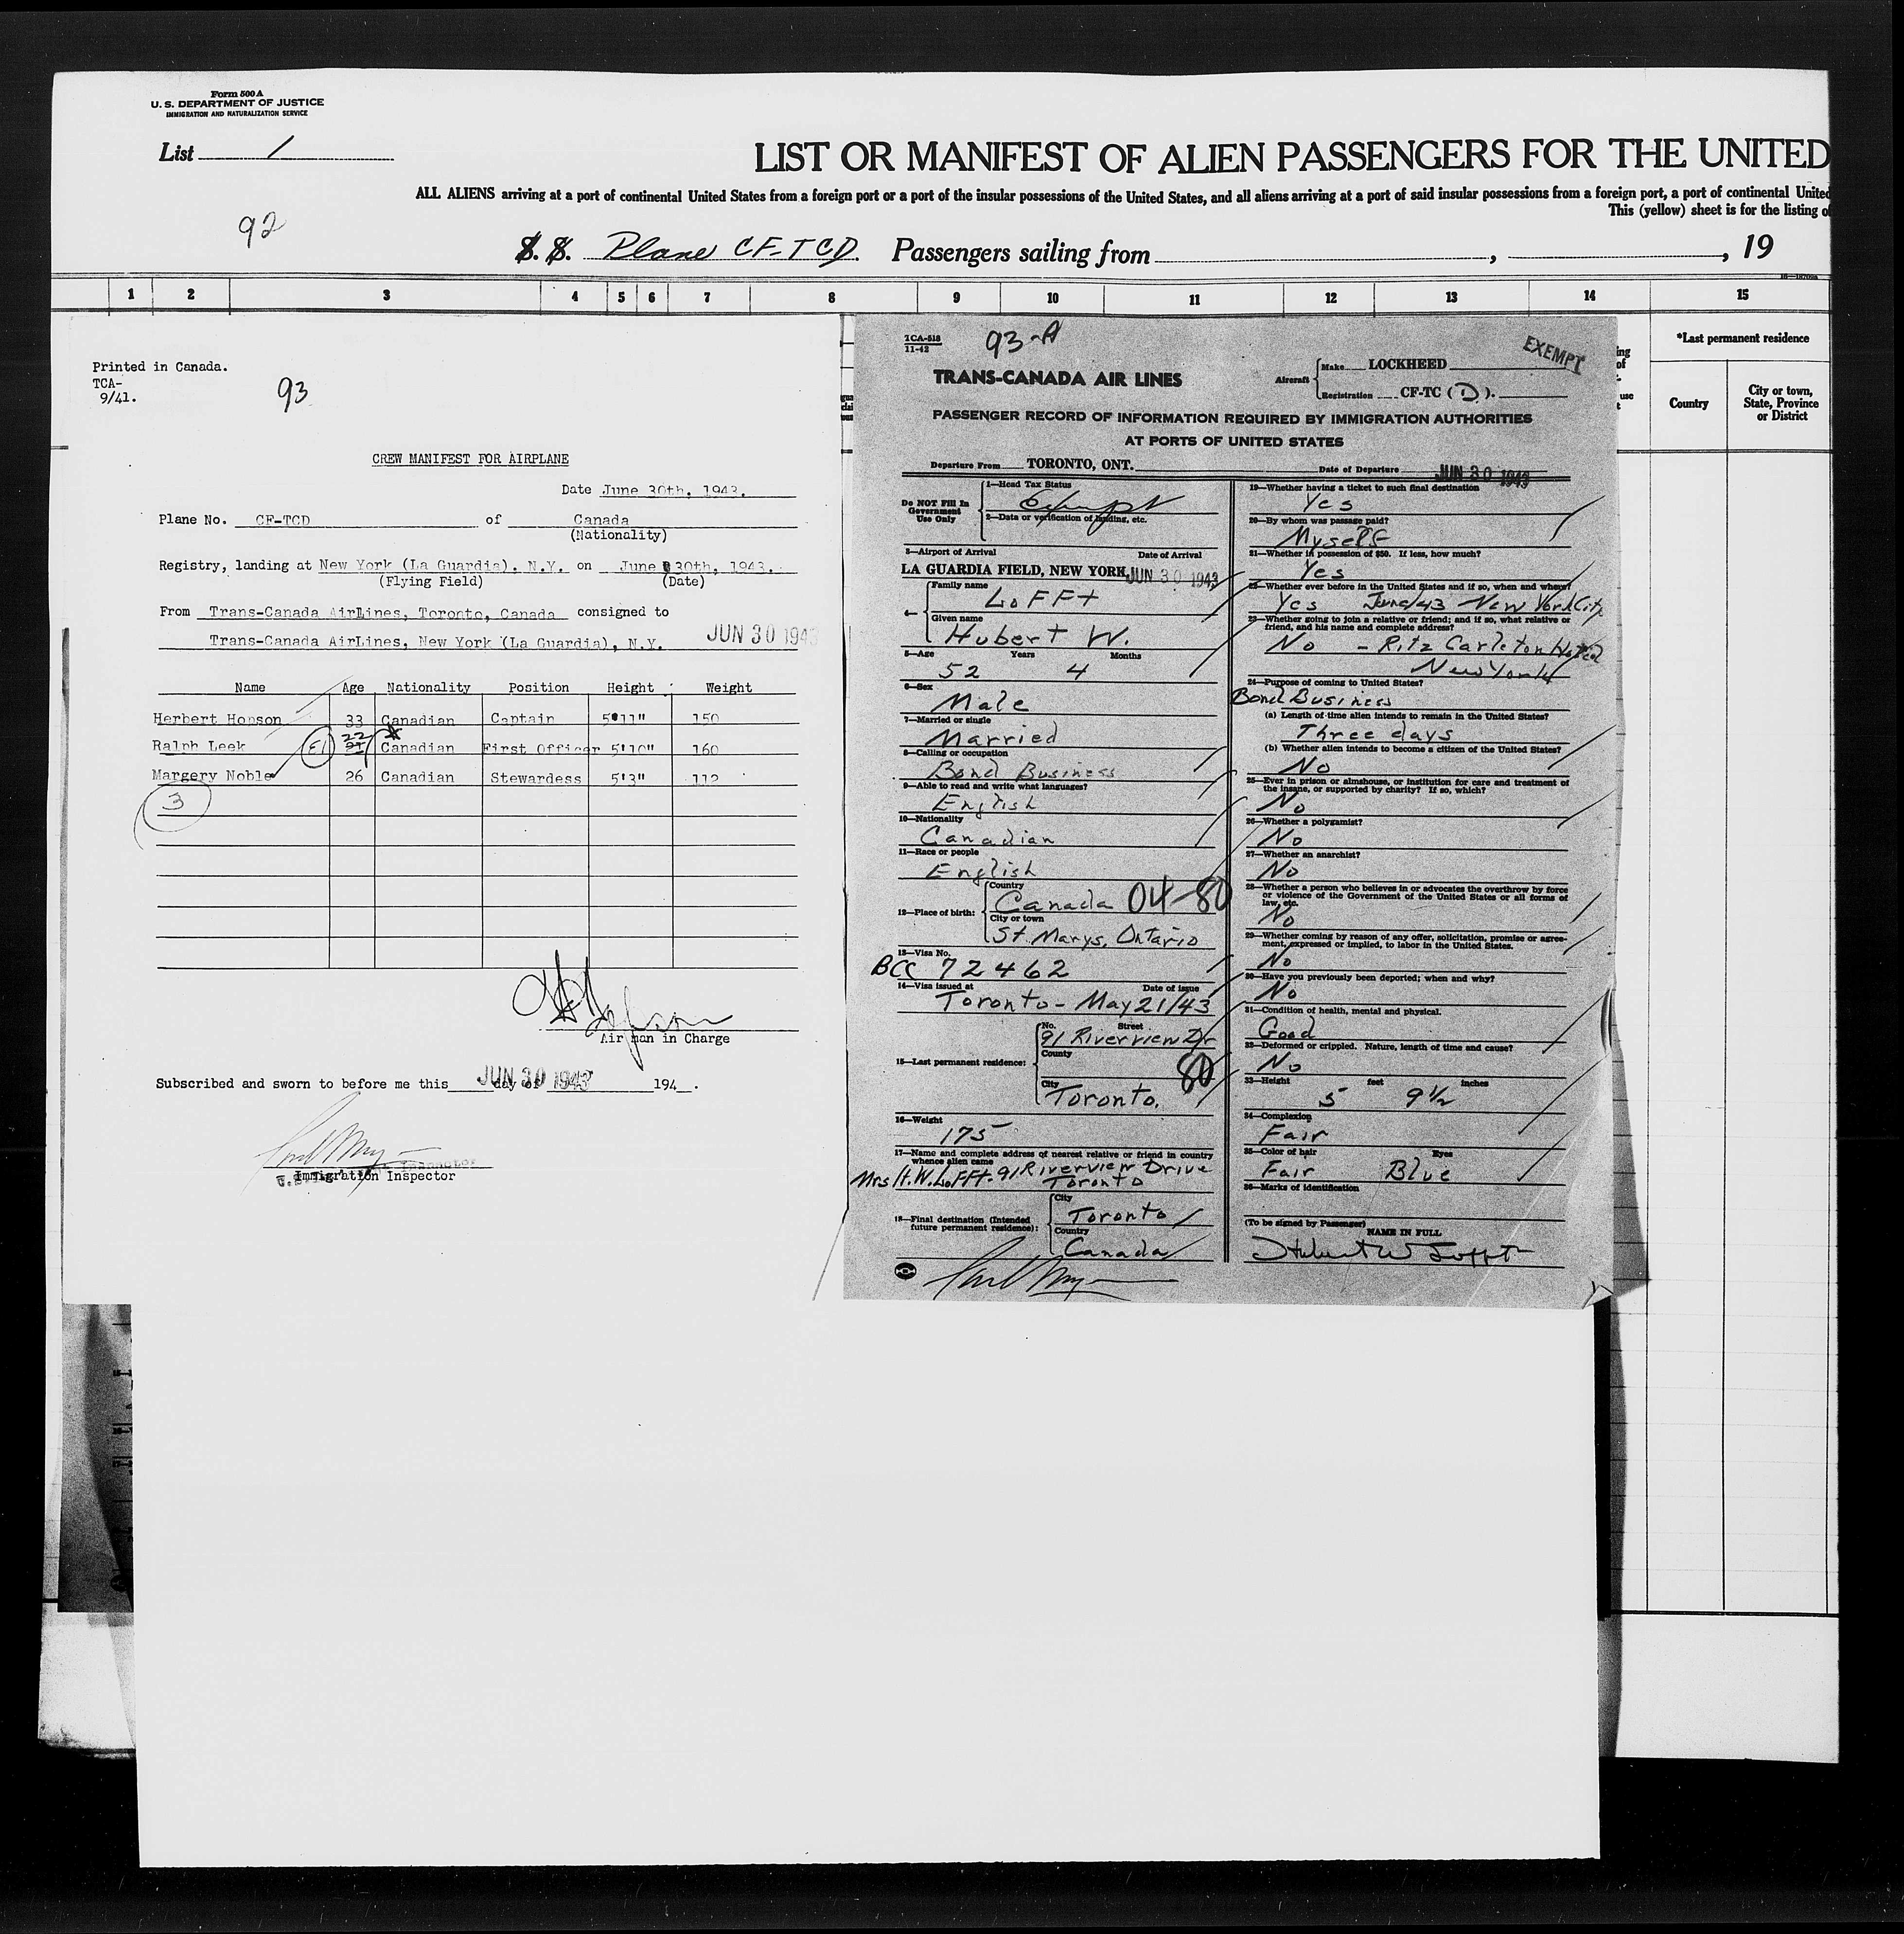 Form 500 A
U. S. DEPARTMENT OF JUSTICE
IMMIGRATION AND NATURALIZATION SERVICE
List 1
LIST OR MANIFEST OF ALIEN PASSENGERS FOR THE UNITED
ALL ALIENS arriving at a port of continental United States from a foreign port or a port of the insular possessions of the United States, and all aliens arriving at a port of said insular possessions from a foreign port, a port of continental United
This (yellow) sheet is for the listing of
92
S. S. Plane CF-TCD. Passengers sailing from , , 19
1 2 3 4 5 6 7 8 9 10 11 12 13 14 15
*Last permanent residence
Country
City or town, State, Province or District
Printed in Canada.
TCA-
9/41.
93
CREW MANIFEST FOR AIRPLANE
Date June 30th, 1943.
Plane No. CF-TCD of Canada
(Nationality)
Registry, landing at New York (La Guardia), N.Y. on June 30th, 1943.
(Flying Field) (Date)
From Trans-Canada AirLines, Toronto, Canada consigned to
Trans-Canada AirLines, New York (La Guardia), N.Y.
JUN 30 1943
Name Age Nationality Position Height Weight
Herbert Hopson 33 Canadian Captain 5'11" 150
Ralph Leek 21 22 Canadian First Officer 5'10" 160
Margery Noble 26 Canadian Stewardess 5'3" 112
3
Air man in Charge
Subscribed and sworn to before me this day of JUN 30 1943 194 .
Immigration Inspector
TCA-518
11-42
93-A
EXEMPT
TRANS-CANADA AIR LINES
Aircraft
Make LOCKHEED
Registration CF-TC (D).
PASSENGER RECORD OF INFORMATION REQUIRED BY IMMIGRATION AUTHORITIES
AT PORTS OF UNITED STATES
Departure From TORONTO, ONT. Date of Departure JUN 30 1943
Do NOT Fill In Government Use Only
1—Head Tax Status
Exempt
2—Data or verification of landing, etc.
3—Airport of Arrival Date of Arrival
LA GUARDIA FIELD, NEW YORK JUN 30 1943
4—
Family name
LoFFt
Given name
Hubert W.
5—Age Years Months
52 4
6—Sex
Male
7—Married or single
Married
8—Calling or occupation
Bond Business
9—Able to read and write what languages?
English
10—Nationality
Canadian
11—Race or people
English
12—Place of birth:
Country
Canada 04-80
City or town
St. Marys, Ontario
13—Visa No.
BCC 72462
14—Visa issued at Date of issue
Toronto - May 21/43
15—Last permanent residence:
No. Street
91 Riverview Dr
County
80
City
Toronto.
16—Weight
175
17—Name and complete address of nearest relative or friend in country
whence alien came
Mrs H.W. LoFFt. 91 Riverview Drive
Toronto
18—Final destination (Intended
future permanent residence):
City
Toronto
Country
Canada
19—Whether having a ticket to such final destination
Yes
20—By whom was passage paid?
Myself
21—Whether in possession of $50. If less, how much?
Yes
22—Whether ever before in the United States and if so, when and where?
Yes June/43 New York City
23—Whether going to join a relative or friend; and if so, what relative or
friend, and his name and complete address?
No - Ritz Carleton Hotel
New York
24—Purpose of coming to United States?
Bond Business
(a) Length of time alien intends to remain in the United States?
Three days
(b) Whether alien intends to become a citizen of the United States?
No
25—Ever in prison or almshouse, or institution for care and treatment of
the insane, or supported by charity? If so, which?
No
26—Whether a polygamist?
No
27—Whether an anarchist?
No
28—Whether a person who believes in or advocates the overthrow by force
or violence of the Government of the United States or all forms of
law, etc.
No
29—Whether coming by reason of any offer, solicitation, promise or agree-
ment, expressed or implied, to labor in the United States.
No
30—Have you previously been deported; when and why?
No
31—Condition of health, mental and physical.
Good
32—Deformed or crippled. Nature, length of time and cause?
No
33—Height feet inches
5 9½
34—Complexion
Fair
35—Color of hair Eyes
Fair Blue
36—Marks of identification
(To be signed by Passenger)
NAME IN FULL
Hubert W Lofft